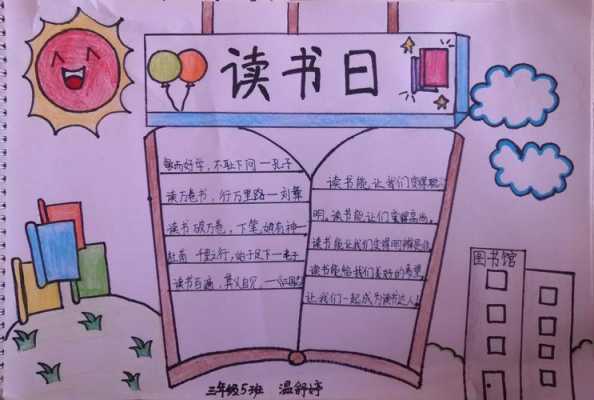 读书日
敏而好学，不耻下问一孔子
读万卷书，行万里路一刘彝
读书破万卷，下笔如有神一
千里之行，始于足下一老子
读书百遍，其义自见，一《三国》
读书能让我们变得聪
明。读书能让们变得高尚。
读书能让我们变得明辨是非
读书能给我们美好的希望
让我们一起成为读书达人！
图书馆
三年级5班 温舒婷